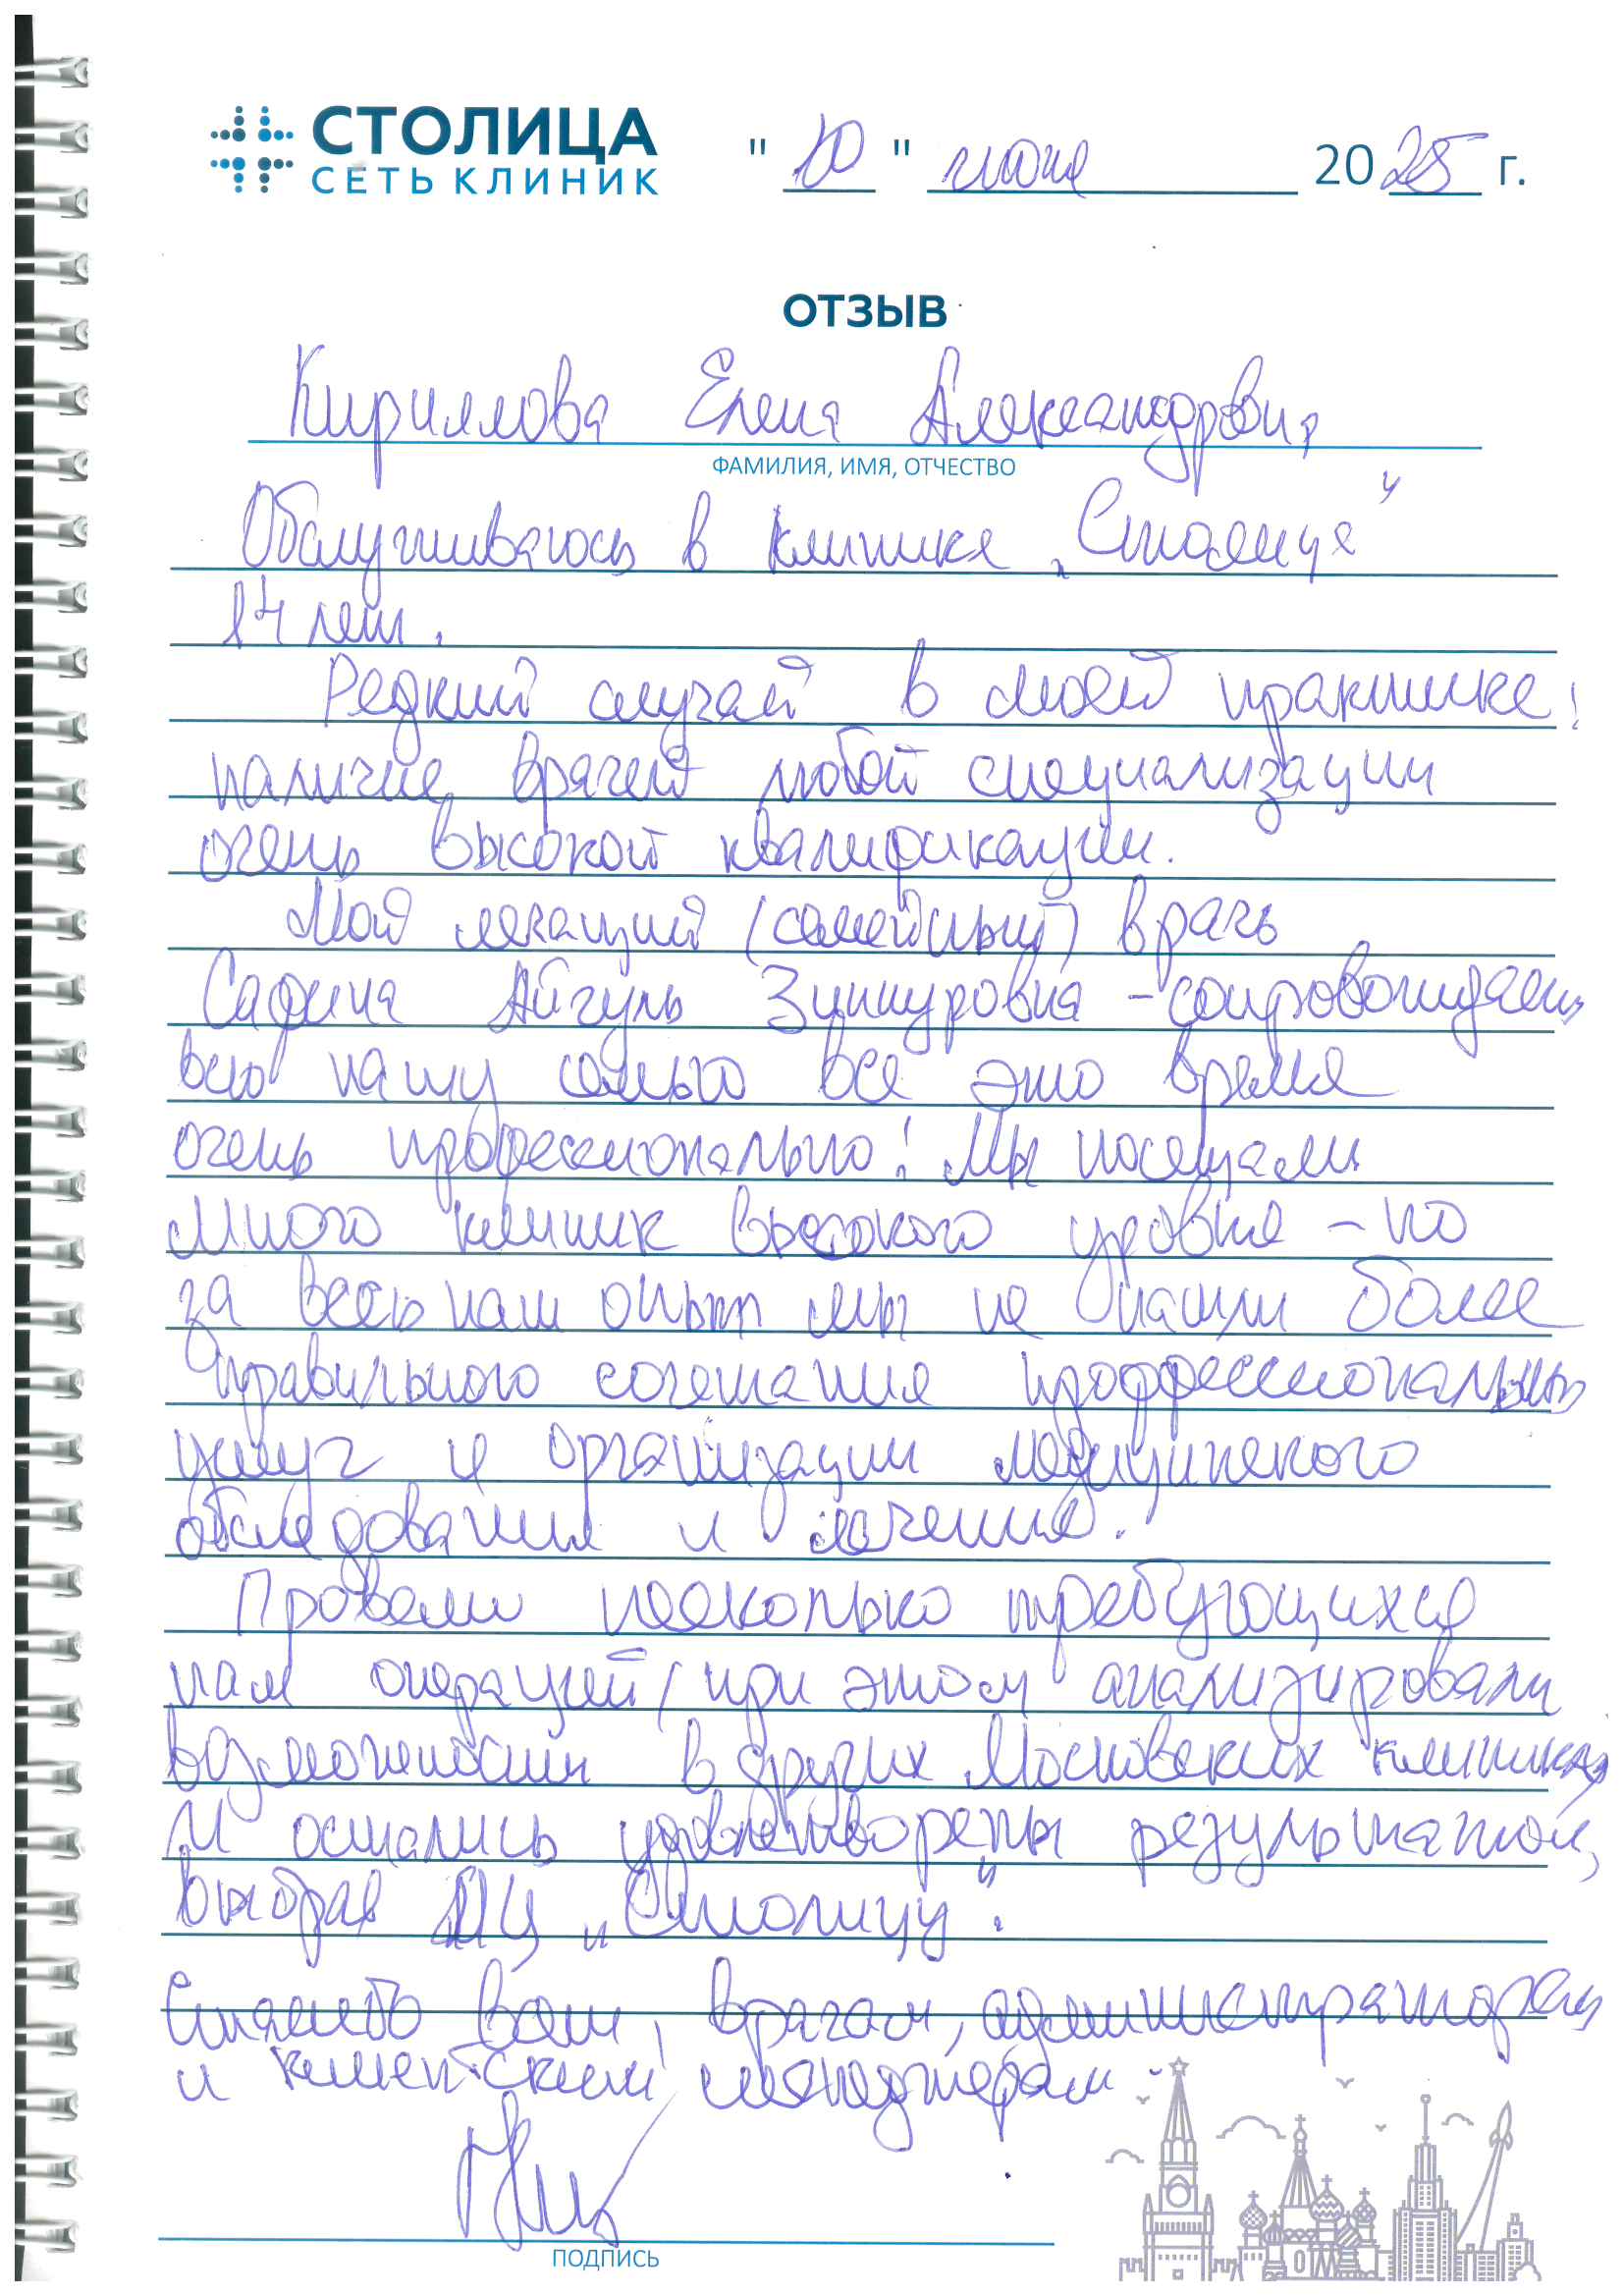 СТОЛИЦА
СЕТЬ КЛИНИК
" 10 " июня 2025 г.
ОТЗЫВ
Кириллова Елена Александровна
ФАМИЛИЯ, ИМЯ, ОТЧЕСТВО
Обслуживаюсь в клинике „Столица"
14 лет.
Редкий случай в моей практике:
наличие врачей любой специализации
очень высокой квалификации.
Мой лечащий (семейный) врач
Сафина Айгуль Зиннуровна - сопровождает
всю нашу семью все это время
очень профессионально! Мы посещали
много клиник высокого уровня - но
за весь наш опыт мы не нашли более
правильного сочетания профессиональных
услуг и организации медицинского
обследования и лечения.
Провели несколько требующихся
нам операций, при этом анализировали
возможности в других Московских клиниках
и остались удовлетворены результатом,
выбрав МЦ „Столицу".
Спасибо вам, врачам, администраторам
и клиентским менеджерам.
ПОДПИСЬ